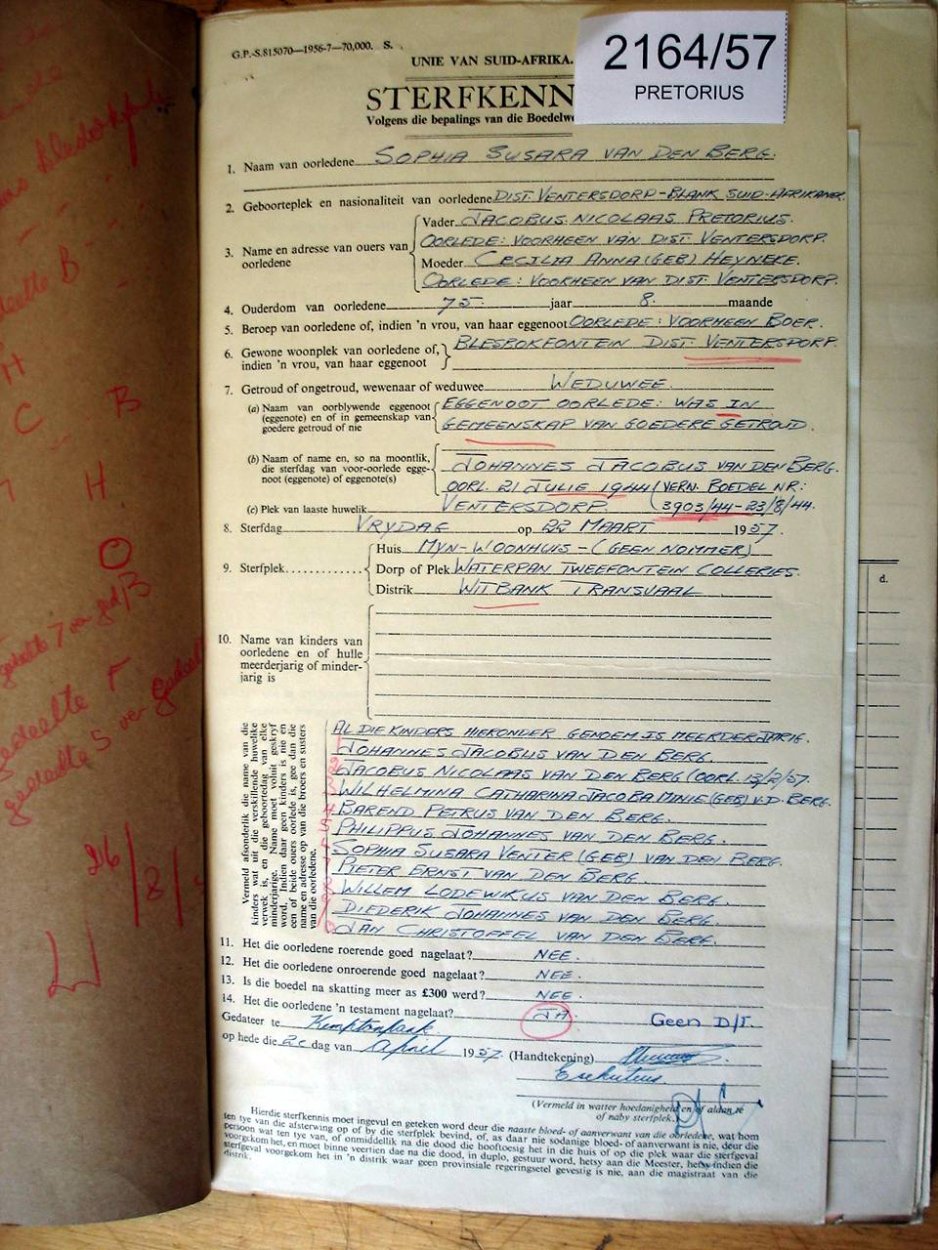 G.P.-S.815070—1956-7—70,000. S.
2164/57
PRETORIUS
UNIE VAN SUID-AFRIKA.
STERFKENN
Volgens die bepalings van die Boedelw
1. Naam van oorledene SOPHIA SUSARA VAN DEN BERG.
2. Geboorteplek en nasionaliteit van oorledene DIST. VENTERSDORP-BLANK SUID-AFRIKANER
3. Name en adresse van ouers van oorledene
Vader JACOBUS NICOLAAS PRETORIUS.
OORLEDE: VOORHEEN VAN DIST. VENTERSDORP.
Moeder CECILIA ANNA (GEB) HEYNEKE.
OORLEDE: VOORHEEN VAN DIST. VENTERSDORP.
4. Ouderdom van oorledene 75 jaar 8. maande
5. Beroep van oorledene of, indien 'n vrou, van haar eggenoot OORLEDE: VOORHEEN BOER.
6. Gewone woonplek van oorledene of, indien 'n vrou, van haar eggenoot
BLESBOKFONTEIN DIST. VENTERSDORP.
7. Getroud of ongetroud, wewenaar of weduwee WEDUWEE.
(a) Naam van oorblywende eggenoot
(eggenote) en of in gemeenskap van
goedere getroud of nie
EGGENOOT OORLEDE: WAS IN
GEMEENSKAP VAN GOEDERE GETROUD.
(b) Naam of name en, so na moontlik,
die sterfdag van voor-oorlede egge-
noot (eggenote) of eggenote(s)
JOHANNES JACOBUS VAN DEN BERG.
OORL. 21 JULIE 1944 (VERN. BOEDEL NR:
(c) Plek van laaste huwelik VENTERSDORP. 3903/44-23/8/44.
8. Sterfdag VRYDAG op 22 MAART 1957.
9. Sterfplek
Huis MYN-WOONHUIS-(GEEN NOMMER)
Dorp of Plek WATERPAN TWEEFONTEIN COLLERIES.
Distrik WITBANK TRANSVAAL
10. Name van kinders van
oorledene en of hulle
meerderjarig of minder-
jarig is
Vermeld afsonderlik die name van die
kinders wat uit die verskillende huwelike
verwek is, en die geboortedag van elke
minderjarige. Name moet voluit geskryf
word. Indien daar geen kinders is nie en
een of beide ouers oorlede is, gee dan die
name en adresse op van die broers en susters
van die oorledene.
AL DIE KINDERS HIERONDER GENOEM IS MEERDERJARIG.
1 JOHANNES JACOBUS VAN DEN BERG.
2 JACOBUS NICOLAAS VAN DEN BERG (OORL. 13/2/57.
3 WILHELMINA CATHARINA JACOBA MINIE (GEB) V.D. BERG.
4 BAREND PETRUS VAN DEN BERG.
5 PHILIPPUS JOHANNES VAN DEN BERG.
6 SOPHIA SUSARA VENTER (GEB) VAN DEN BERG.
7 PIETER ERNST VAN DEN BERG.
8 WILLEM LODEWIKUS VAN DEN BERG.
9 DIEDERIK JOHANNES VAN DEN BERG.
10 JAN CHRISTOFFEL VAN DEN BERG.
11. Het die oorledene roerende goed nagelaat? NEE.
12. Het die oorledene onroerende goed nagelaat? NEE.
13. Is die boedel na skatting meer as £300 werd? NEE.
14. Het die oorledene 'n testament nagelaat? JA. Geen D/T.
Gedateer te Kemptonpark
op hede die dag van April 1957. (Handtekening)
Eksekuteur
(Vermeld in watter hoedanigheid en of aldan te
of naby sterfplek.)
Hierdie sterfkennis moet ingevul en geteken word deur die naaste bloed- of aanverwant van die oorledene, wat hom
ten tye van die afsterwing op of by die sterfplek bevind, of, as daar nie sodanige bloed- of aanverwant is nie, deur die
persoon wat ten tye van, of onmiddellik na die dood die hooftoesig het in die huis of op die plek waar die sterfgeval
voorgekom het, en moet binne veertien dae na die dood, in duplo, gestuur word, hetsy aan die Meester, hetsy indien die
sterfgeval voorgekom het in 'n distrik waar geen provinsiale regeringsetel gevestig is nie, aan die magistraat van die
distrik.
d.
B
H
C B
H
O
gedeelte 5 ver
26/8/